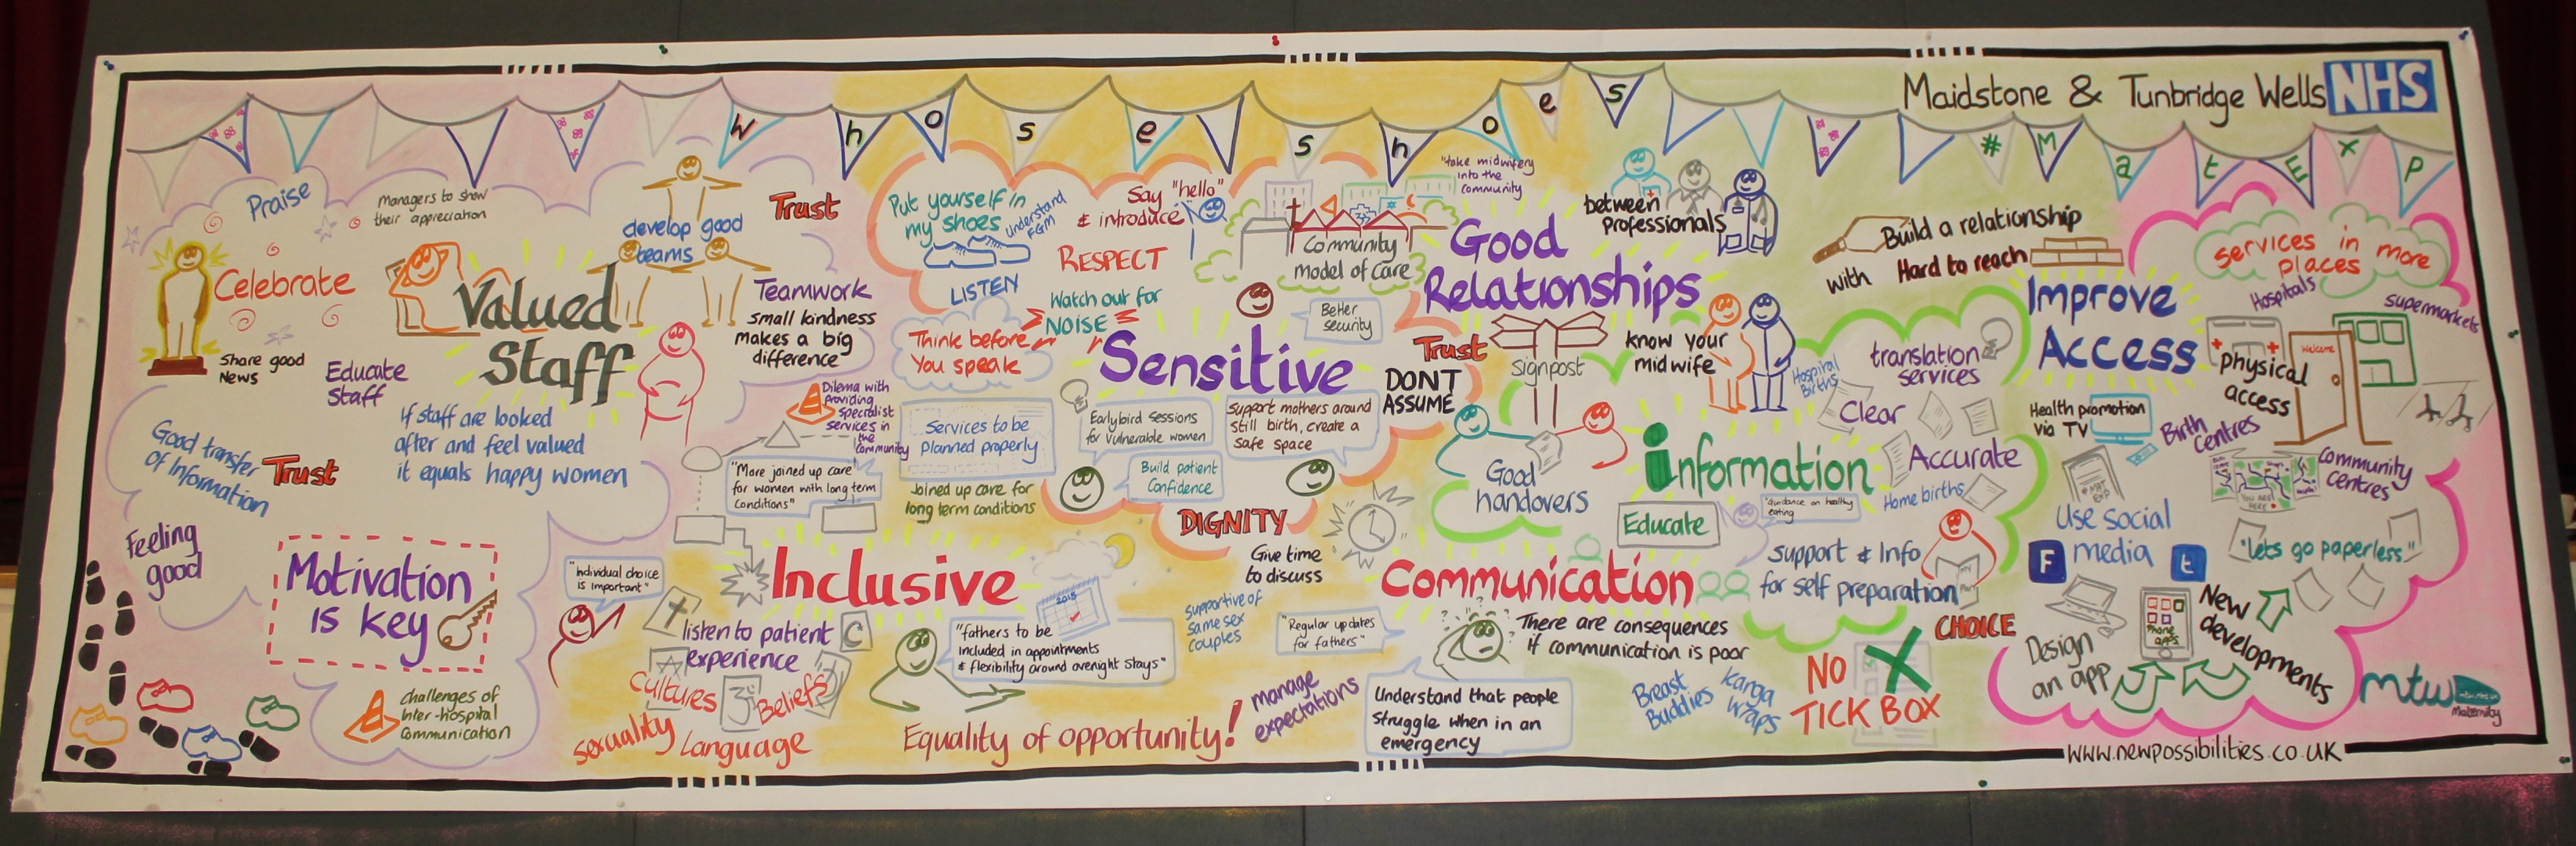 Maidstone & Tunbridge Wells NHS
whose shoes
#MatExp
Praise
Managers to show
their appreciation
develop good
teams
Trust
Celebrate
Valued
Staff
Share good
News
Educate
Staff
Teamwork
small kindness
makes a big
difference
If staff are looked
after and feel valued
it equals happy women
Good transfer
of Information
Trust
Feeling
good
Motivation
is key
challenges of
Inter-hospital
Communication
Put yourself in
my shoes
Understand
FGM
LISTEN
Say "hello"
& introduce
RESPECT
Watch out for
NOISE
Think before
You speak
Sensitive
Better
security
Community
model of care
"take midwifery
into the
community
Dilema with
providing
specialist
services in
the
community
Services to be
Planned properly
"More joined up care
for women with long term
conditions"
Joined up care for
long term conditions
Earlybird sessions
for vulnerable women
Support mothers around
still birth, create a
safe space
Build patient
Confidence
DIGNITY
Trust
DONT
ASSUME
Give time
to discuss
Inclusive
"Individual choice
is important"
listen to patient
experience
Cultures
Beliefs
sexuality
Language
"fathers to be
Included in appointments
& flexibility around overnight stays"
2015
Equality of opportunity!
supportive of
same sex
couples
"Regular updates
for fathers"
manage
expectations
Good
Relationships
between
professionals
signpost
know your
midwife
Good
handovers
Build a relationship
with Hard to reach
Information
Educate
translation
services
Hospital
Births
Clear
Accurate
Home births
"Guidance on healthy
eating
Support & Info
for self preparation
CHOICE
Communication
There are consequences
if communication is poor
Understand that people
struggle when in an
emergency
Breast
Buddies
Kanga
Wraps
NO
TICK BOX
Improve
Access
services in more
places
Hospitals
Supermarkets
Welcome
Physical
access
Health promotion
via TV
Birth
Centres
Community
Centres
YOU ARE
HERE
Use social
media
F
t
"lets go paperless"
Design
an app
Phone
apps
New
developments
mtw
Maternity
www.newpossibilities.co.uk